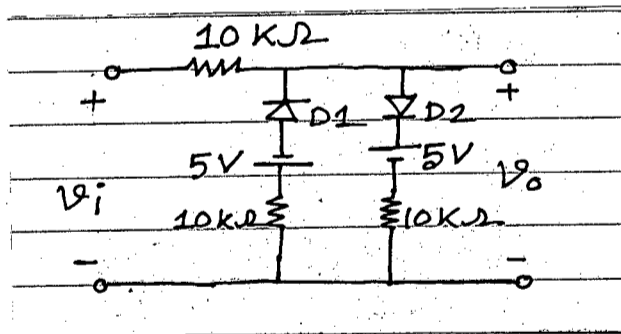 10 KΩ
+ +
D1 D2
5V 5V
vi vo
10 KΩ 10 KΩ
- -